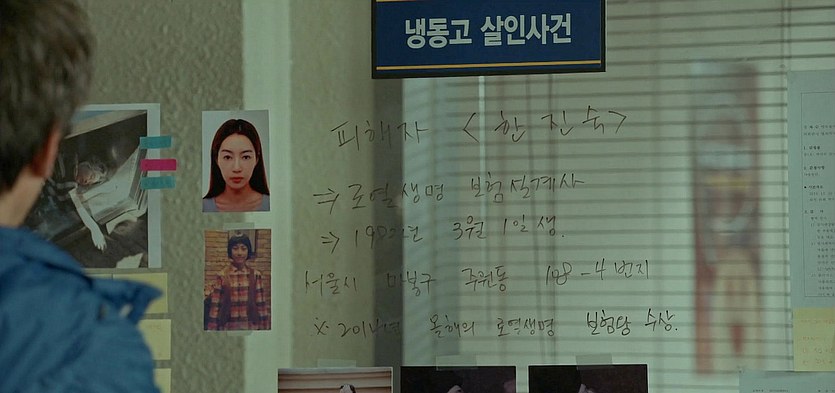 냉동고 살인사건
피해자 <한 진숙>
⇒ 로열생명 보험설계사
⇒ 3월 1일생.
서울시 마북구 주원동 108-4번지
※ 2014년 올해의 로열생명 보험당 수상.